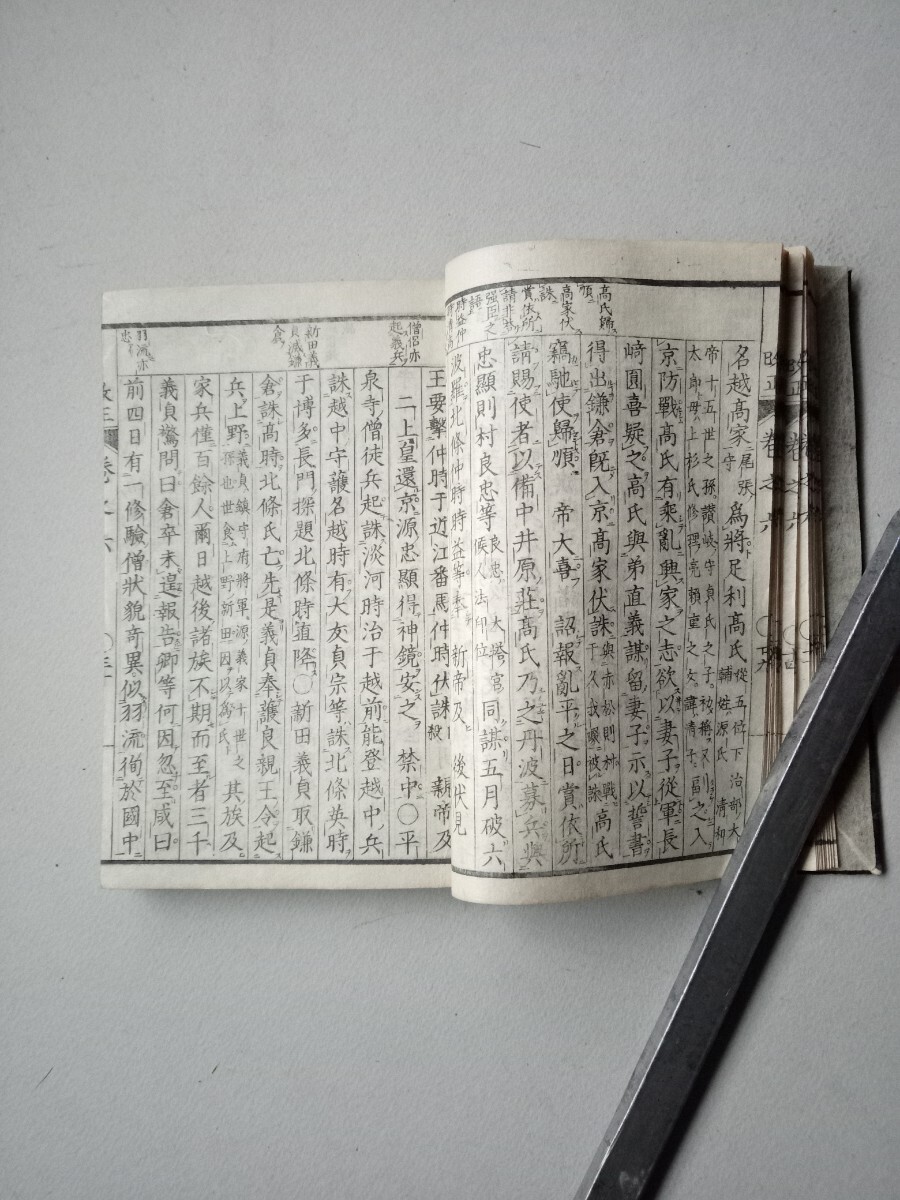 高氏歸
順
高家伏
誅
賞依所
請非恭
強臣之
語
名越高家尾張守為將足利高氏從五位下治部大輔姓源氏清和
帝十五世之孫讃岐守貞氏之子初稱又
太郎母上杉氏修理亮頼重之女諱清子副之入
京防戰高氏有乘亂興家之志欲以妻子從軍長
崎圓喜疑之高氏與弟直義謀留妻子示以誓書
得出鎌倉既入京高家伏誅與赤松則村戰于久我畷被誅高氏
竊馳使歸順帝大喜詔報亂平之日賞依所
請賜使者以備中井原莊高氏乃之丹波募兵與
忠顯則村良忠等良忠大塔宮候人法印位同謀五月破六
波羅北條仲時時益等奉新帝及後伏見
僧侶亦
起義兵
新田義
貞滅鎌
倉
羽流亦
忠
王要擊仲時于近江番馬仲時伏誅親帝及
二上皇還京源忠顯得神鏡安之禁中〇平
泉寺僧徒兵起誅淡河時治于越前能登越中兵
誅越中守護名越時有大友貞宗等誅北條英時
于博多長門探題北條時直降〇新田義貞取鎌
倉誅高時北條氏亡先是義貞奉護良親王令起
兵上野義貞鎮守府將軍源義家十世之孫也世食上野新田因以為氏其族及
家兵僅百餘人爾日越後諸族不期而至者三千
義貞驚問曰倉卒未遑報告卿等何因忽至咸曰
前四日有一修驗僧狀貌奇異似羽流徇於國中
改正
卷之六